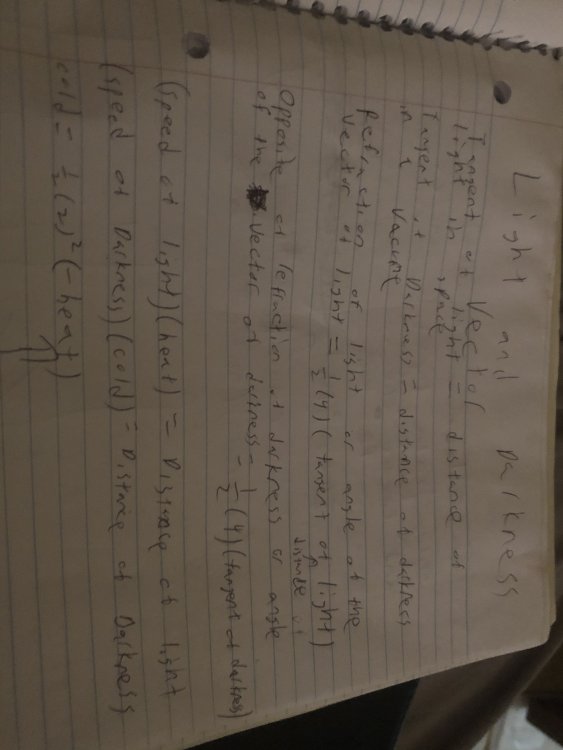 Light and Darkness
Tangent of Vector
light = distance of
light in space
Tangent of Darkness = distance of darkness
in a Vacume
Refraction of light or angle of the
Vector of light = 1/2 (4) (tangent of light)
distance
Opposite of refraction of darkness or angle
of the Vector of darkness = 1/2 (4) (tangent of darkness)
(speed of light) (heat) = Distance of light
(speed of Darkness) (cold) = Distance of Darkness
cold = 1/2 (2)² (-heat)